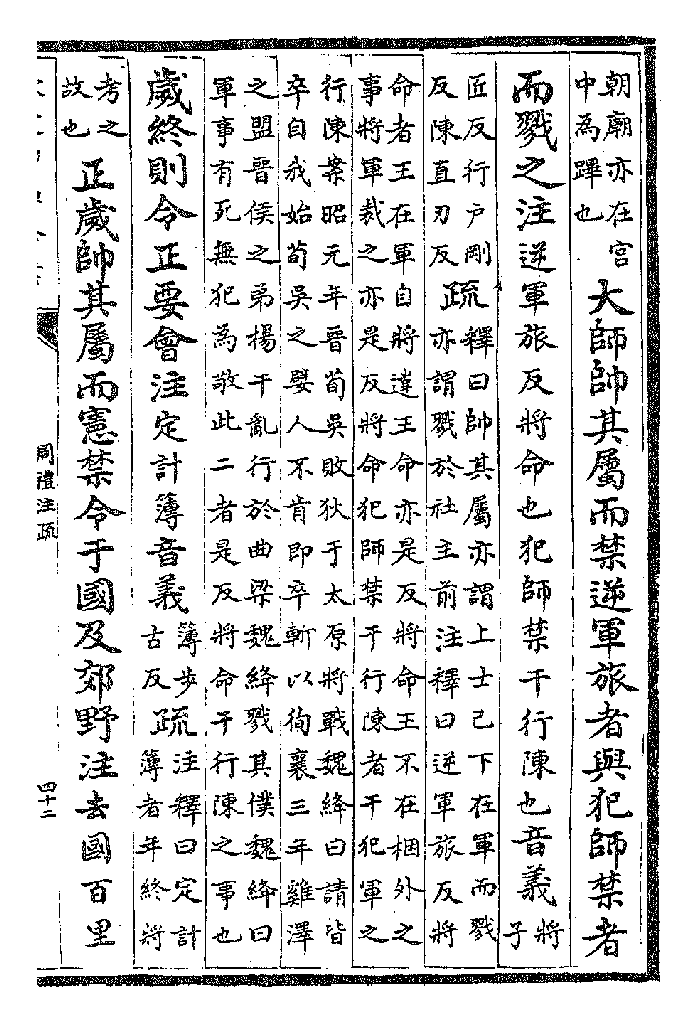 朝廟亦在宮
中為蹕也
大師帥其屬而禁逆軍旅者與犯師禁者
而戮之注逆軍旅反將命也犯師禁干行陳也音義
將
子
匠反行户剛
反陳直刃反
疏
釋曰帥其屬亦謂上士已下在軍而戮
亦謂戮於社主前注釋曰逆軍旅反將
命者王在軍自將違王命亦是反將命王不在梱外之
事將軍裁之亦是反將命犯師禁干行陳者干犯軍之
行陳案昭元年晉荀吳敗狄于太原將戰魏絳曰請皆
卒自我始荀吳之嬖人不肯即卒斬以徇襄三年雞澤
之盟晉侯之弟揚干亂行於曲梁魏絳戮其僕魏絳曰
軍事有死無犯為敬此二者是反將命干行陳之事也
歲終則令正要會注定計簿音義
簿步
古反
疏
注釋曰定計
簿者年終將
考之
故也
正歲帥其屬而憲禁令于國及郊野注去國百里
周禮注疏
四十二